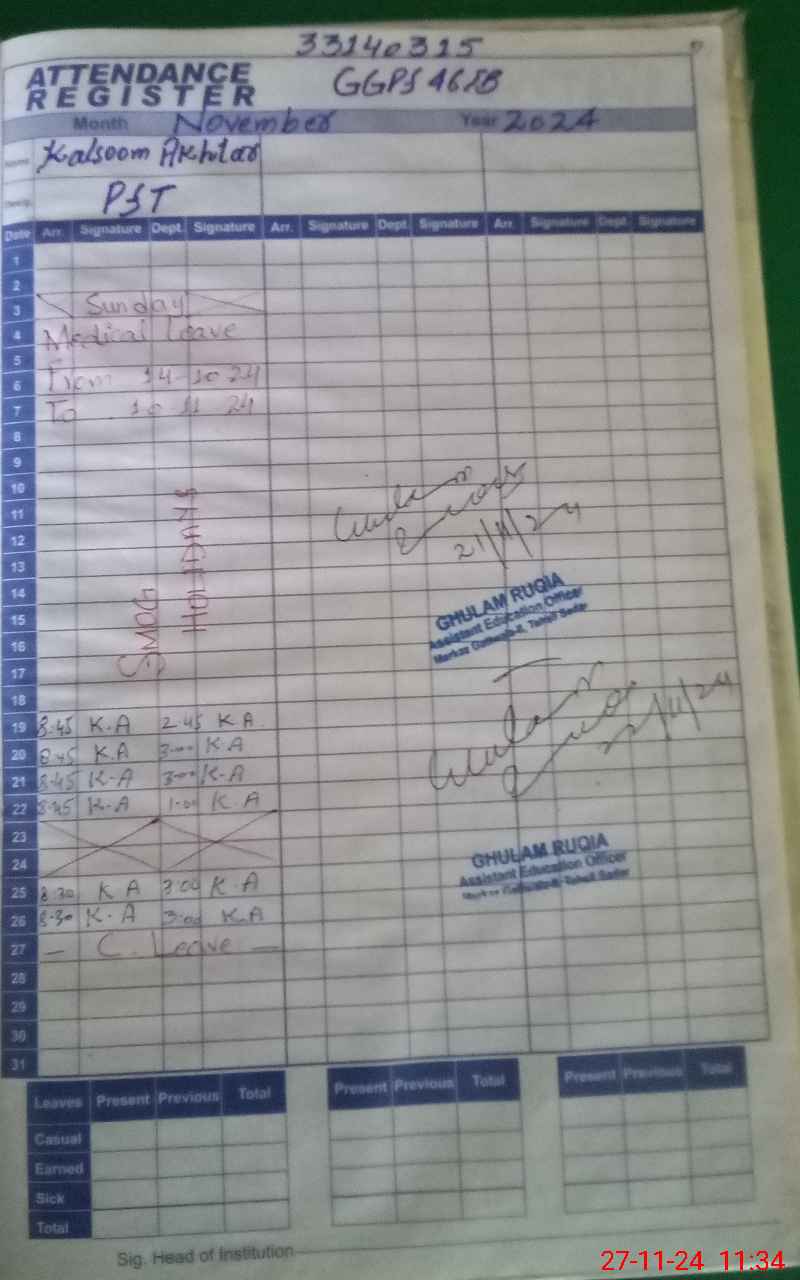 33140315
ATTENDANCE
REGISTER
GGPS 46SB
Month November Year 2024
Name Kalsoom Akhtar
Desig. PST
Date Arr. Signature Dept. Signature Arr. Signature Dept. Signature Arr. Signature Dept. Signature
1
2
3 Sunday
4 Medical leave
5
6 From 14-10-24
7 To 10 11 24
8
9
10
11
12
13
14
15
16
17
18
SMOG
HOLIDAYS
Ghulam
21/11/24
GHULAM RUQIA
Assistant Education Officer
19 8:45 K.A 2:45 K A
20 8:45 K.A 3:00 K.A
21 8:45 K.A 3:00 K.A
22 8:45 K.A 1:00 K.A
Ghulam
22/11/24
23
24
GHULAM RUQIA
Assistant Education Officer
25 8:30 K A 3:00 K.A
26 8:30 K.A 3:00 K.A
27 — C. Leave —
28
29
30
31
Leaves Present Previous Total Present Previous Total Present Previous Total
Casual
Earned
Sick
Total
Sig. Head of Institution
27-11-24 11:34